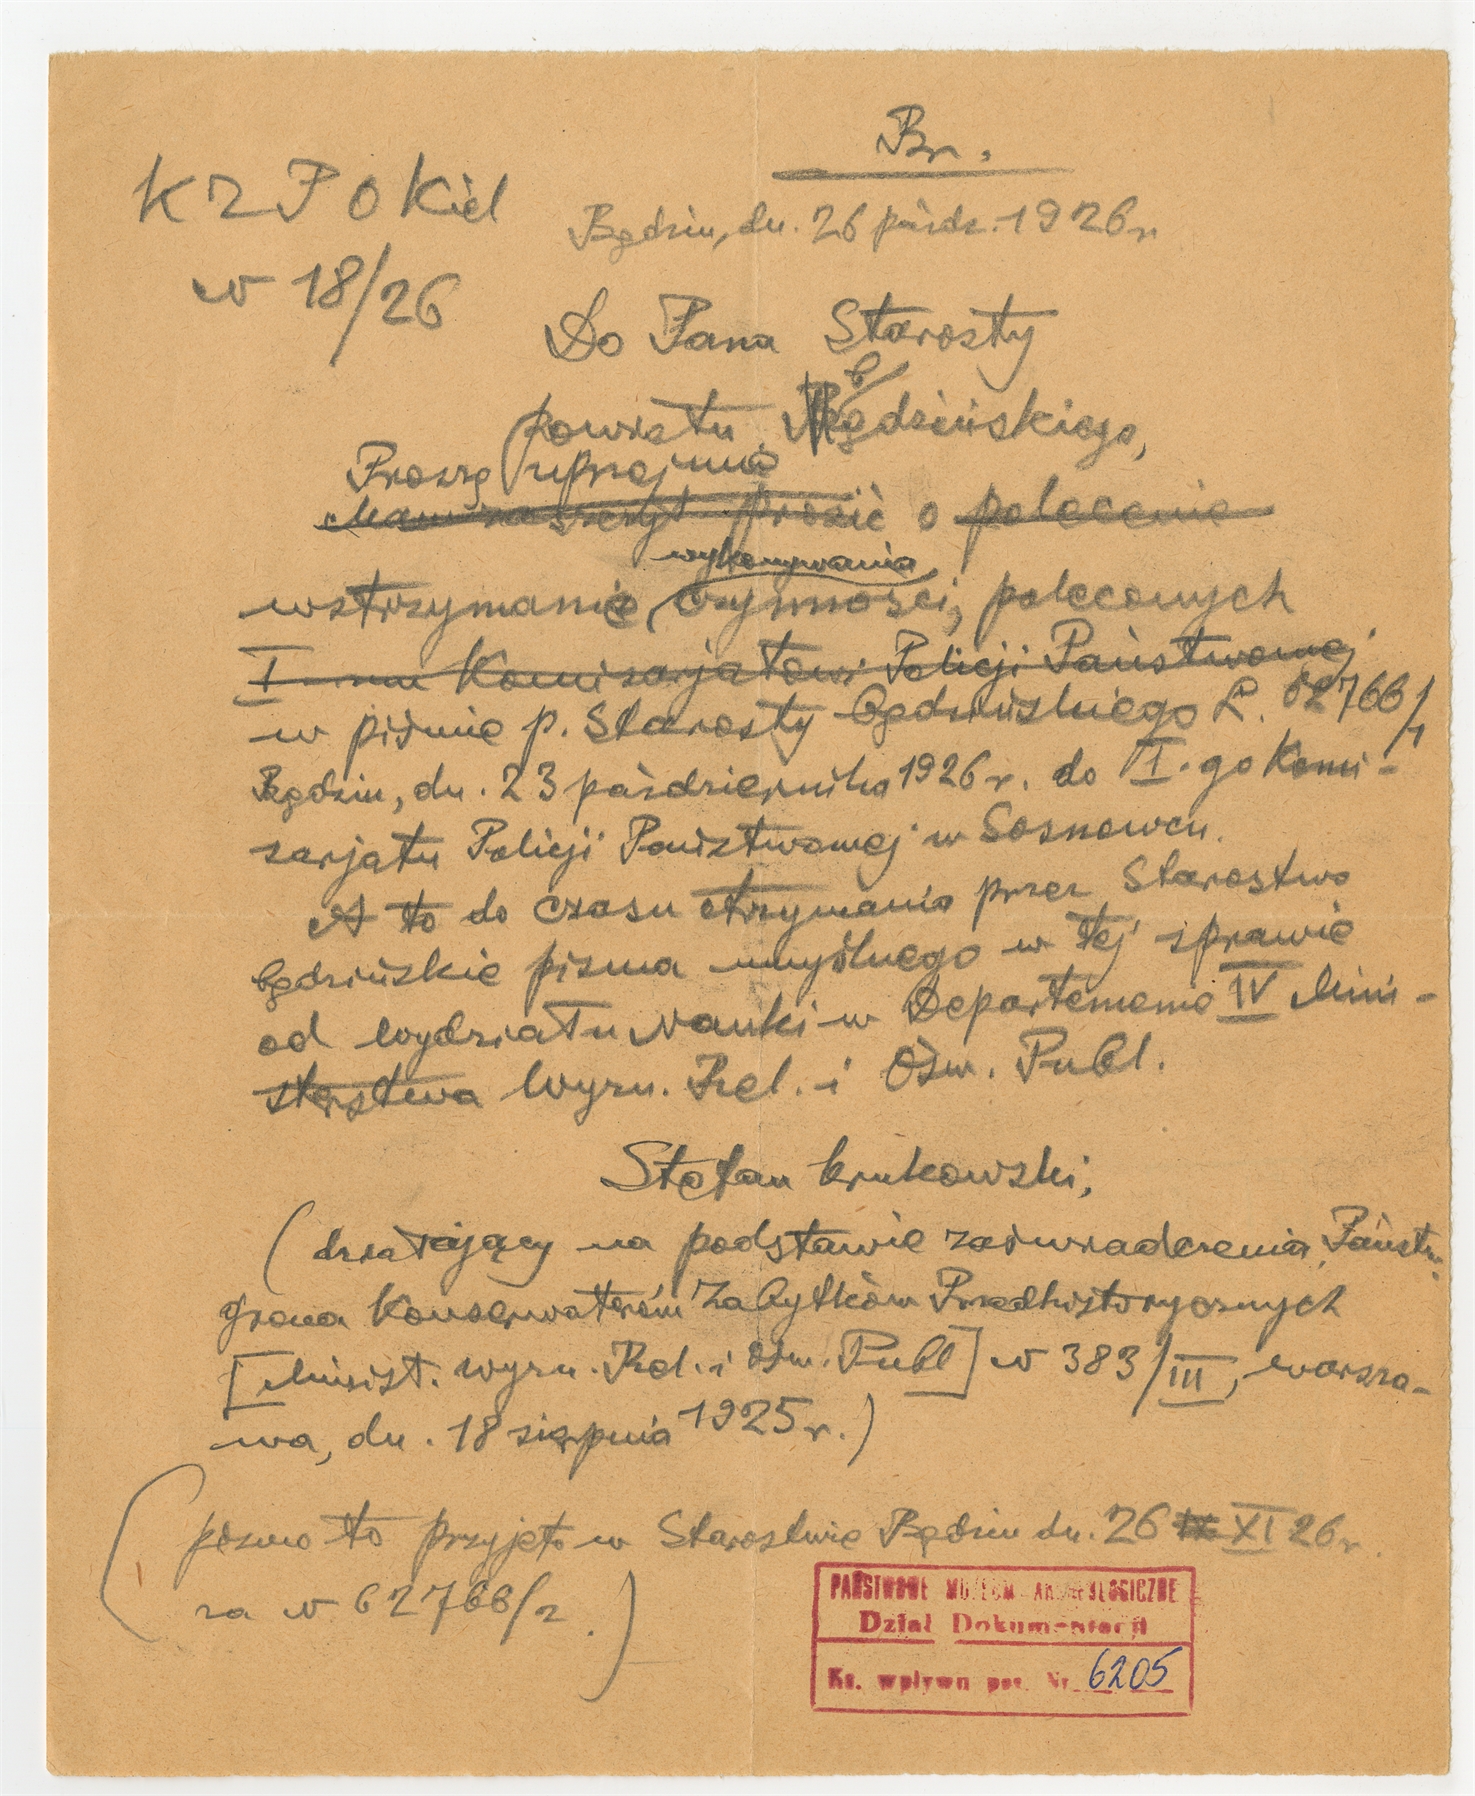 Br.
KZPOKiel
w 18/26
Będzin, dn. 26 paźdz. 1926 r.
Do Pana Starosty
powiatu będzińskiego,
Proszę uprzejmie
Mam zaszczyt prosić o polecenie
wykonywania
wstrzymanie czynności, poleconych
I-mu Komisarjatowi Policji Państwowej
w piśmie p. Starosty będzińskiego L. 62766/1
Będzin, dn. 23 października 1926 r. do I-go Komi-
sarjatu Policji Państwowej w Sosnowcu.
A to do czasu otrzymania przez Starostwo
będzińskie pisma umyślnego w tej sprawie
od Wydziału Nauki w Departamencie IV Mini-
sterstwa Wyzn. Rel. i Ośw. Publ.
Stefan Krukowski,
(działający na podstawie zaświadczenia Państw.
Grona Konserwatorów Zabytków Przedhistorycznych
[Minist. Wyzn. Rel. i Ośw. Publ] w 383/III, Warsza-
wa, dn. 18 sierpnia 1925 r.)
(pismo to przyjęto w Starostwie Będzin dn. 26 XI 26 r.
za w 62766/2.)
PAŃSTWOWE MUZEUM ARCHEOLOGICZNE
Dział Dokumentacji
Ks. wpływu poz. Nr 6205